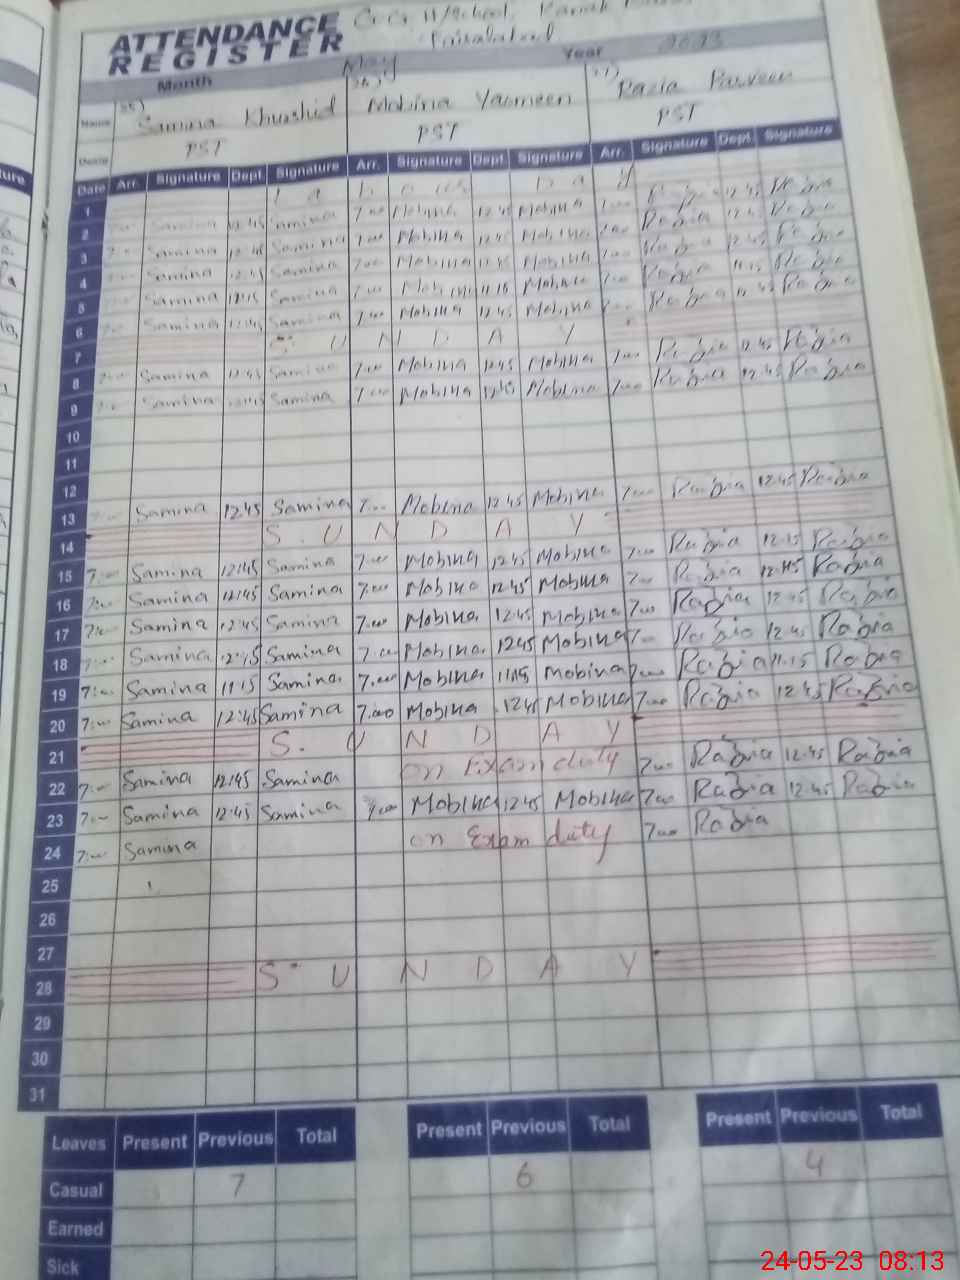 ATTENDANCE REGISTER
Faisalabad
Month May Year 2023
25) 26) 27)
Name Samina Khurshid Mobina Yasmeen Razia Parveen
PST PST PST
Date Arr. Signature Dept. Signature Arr. Signature Dept. Signature Arr. Signature Dept. Signature
1 Day
2 Samina 12:45 Samina 7:00 Mobina 12:45 Mobina 7:00 Rabia 12:45 Rabia
3 Samina Samina 7:00 Mobina 12:45 Mobina 7:00 Rabia 12:45 Rabia
4 Samina 12:45 Samina 7:00 Mobina 12:45 Mobina 7:00 Rabia 12:45 Rabia
5 Samina 11:15 Samina 7:00 Mobina 11:15 Mobina Rabia 11:15 Rabia
6 Samina 12:45 Samina 7:00 Mobina 12:45 Mobina Rabia 12:45 Rabia
7 SUNDAY
8 7:00 Samina 12:45 Samina 7:00 Mobina 12:45 Mobina 7:00 Rabia 12:45 Rabia
9 7:00 Samina 12:45 Samina 7:00 Mobina 12:45 Mobina 7:00 Rabia 12:45 Rabia
10
11
12
13 Samina 12:45 Samina 7:00 Mobina 12:45 Mobina 7:00 Rabia 12:45 Rabia
14 S.UNDAY
15 7:00 Samina 12:45 Samina 7:00 Mobina 12:45 Mobina 7:00 Rabia 12:45 Rabia
16 7:00 Samina 12:45 Samina 7:00 Mobina 12:45 Mobina 7:00 Rabia 12:45 Rabia
17 7:00 Samina 12:45 Samina 7:00 Mobina 12:45 Mobina 7:00 Rabia 12:45 Rabia
18 7:00 Samina 12:45 Samina 7:00 Mobina 12:45 Mobina 7:00 Rabia 12:45 Rabia
19 7:00 Samina 11:15 Samina 7:00 Mobina 11:15 Mobina 7:00 Rabia 11:15 Rabia
20 7:00 Samina 12:45 Samina 7:00 Mobina 12:45 Mobina 7:00 Rabia 12:45 Rabia
21 S.UNDAY
22 7:00 Samina 12:45 Samina on Exam duty 7:00 Rabia 12:45 Rabia
23 7:00 Samina 12:45 Samina 7:00 Mobina 12:45 Mobina 7:00 Rabia 12:45 Rabia
24 7:00 Samina on Exam duty 7:00 Rabia
25
26
27
28 S.UNDAY
29
30
31
Leaves Present Previous Total Present Previous Total Present Previous Total
Casual 7 6 4
Earned
Sick
24-05-23 08:13